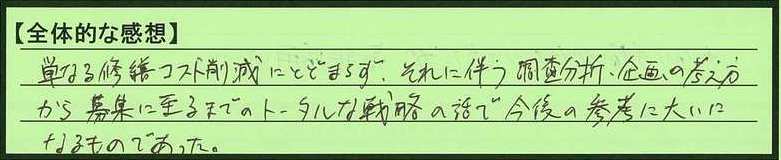 【全体的な感想】
単なる修繕コスト削減にとどまらず、それに伴う調査分析・企画の考え方
から募集に至るまでのトータルな戦略の話で今後の参考に大いに
なるものであった。